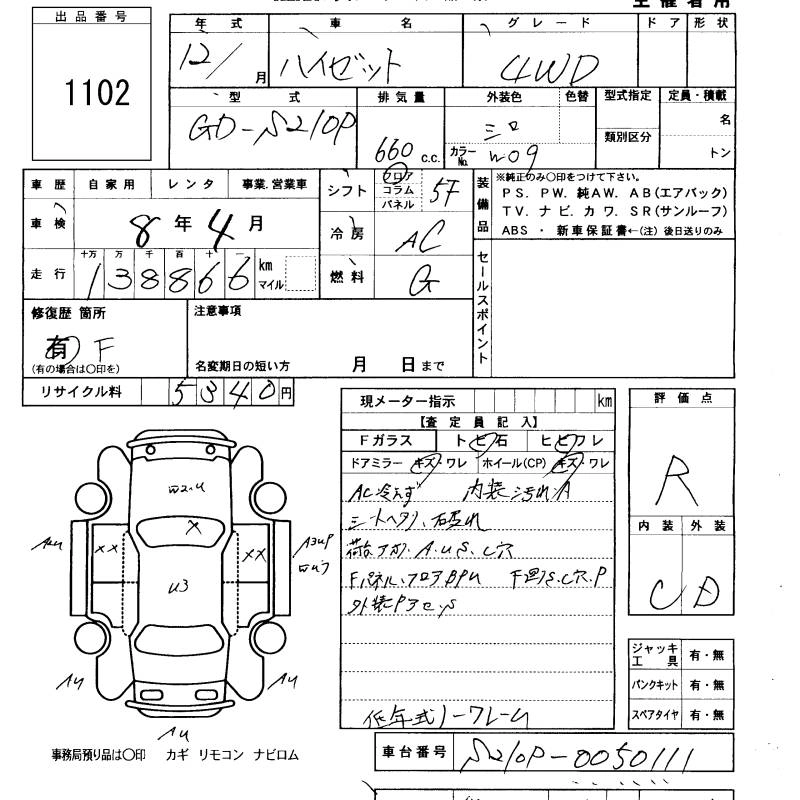 出品番号
1102
年式 車名 グレード ドア 形状
12/ 月 ハイゼット 4WD
型式 排気量 外装色 色替 型式指定 定員・積載
GD-S210P 660 c.c. シロ 類別区分 名
カラーNo. W09 トン
車歴 自家用 レンタ 事業.営業車
車検 8年4月
走行 十万 万 千 百 十 一
138866 km マイル
シフト フロア コラム パネル 5F
冷房 AC
燃料 G
装備品 ※純正のみ〇印をつけて下さい。
PS. PW. 純AW. AB(エアバック)
TV. ナビ. カワ. SR(サンルーフ)
ABS ・ 新車保証書←(注) 後日送りのみ
セールスポイント
修復歴 箇所
有 F
(有の場合は〇印を)
注意事項
名変期日の短い方 月 日まで
リサイクル料 5340円
現メーター指示 km
【査定員記入】
Fガラス トビ石 ヒビワレ
ドアミラー キズ・ワレ ホイール(CP) キズ・ワレ
AC冷えず 内装汚れA
シートヘタリ、
A.U.S.C穴
Fパネル、フロアBPU
外装P
低年式ノークレーム
評価点
R
内装 外装
C D
ジャッキ工具 有・無
パンクキット 有・無
スペアタイヤ 有・無
W2.U
X
XX
XX
U3
AU
A3UP
AU
AU
AU
事務局預り品は〇印 カギ リモコン ナビロム
車台番号 S210P-0050111